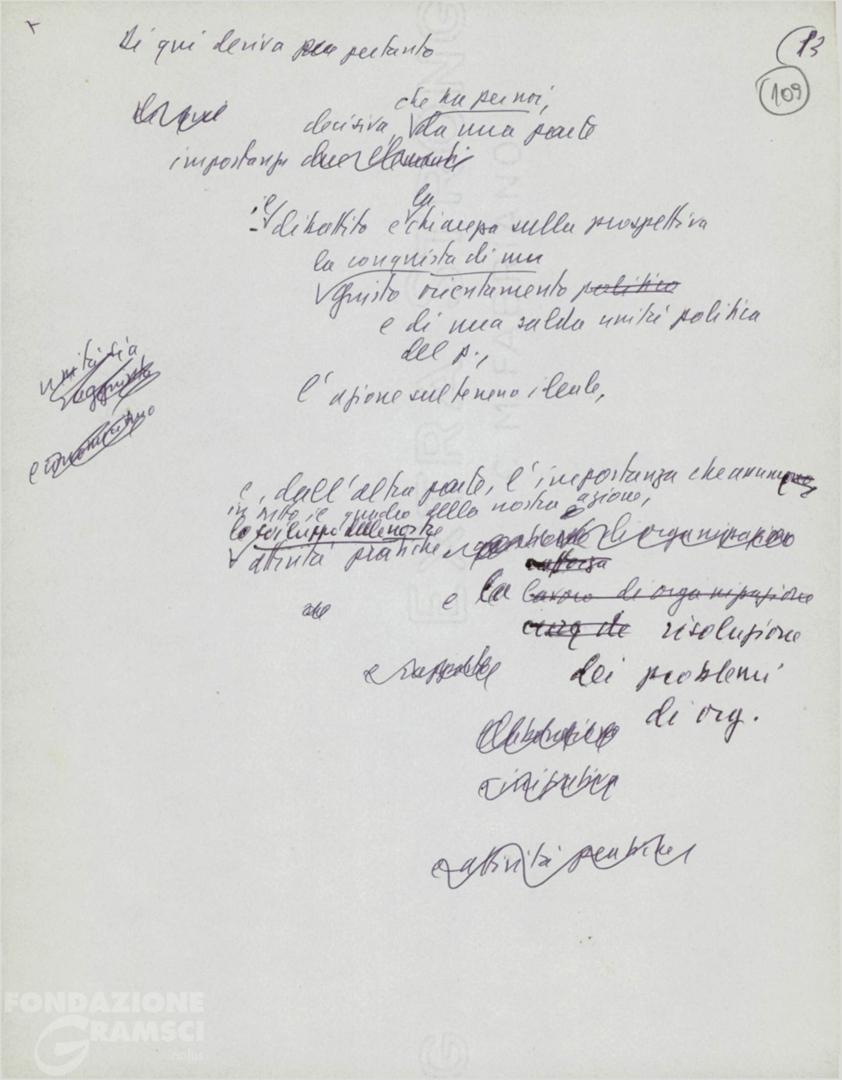 13
109
Di qui deriva pertanto
che ha per noi,
decisiva, da una parte
importanza due elementi
il la
- dibattito e chiarezza sulla prospettiva
la conquista di un
giusto orientamento politico
e di una salda unità politica
del p.,
l'azione sul terreno ideale,
unità sia
e, dall'altra parte, l'importanza che
in tutto il quadro della nostra azione,
lo sviluppo delle nostre
attività pratiche di organizzazione
rafforza
e la lavoro di organizzazione
risoluzione
che
e dei problemi
di org.
iniziativa
attività pratiche
FONDAZIONE
GRAMSCI
onlus